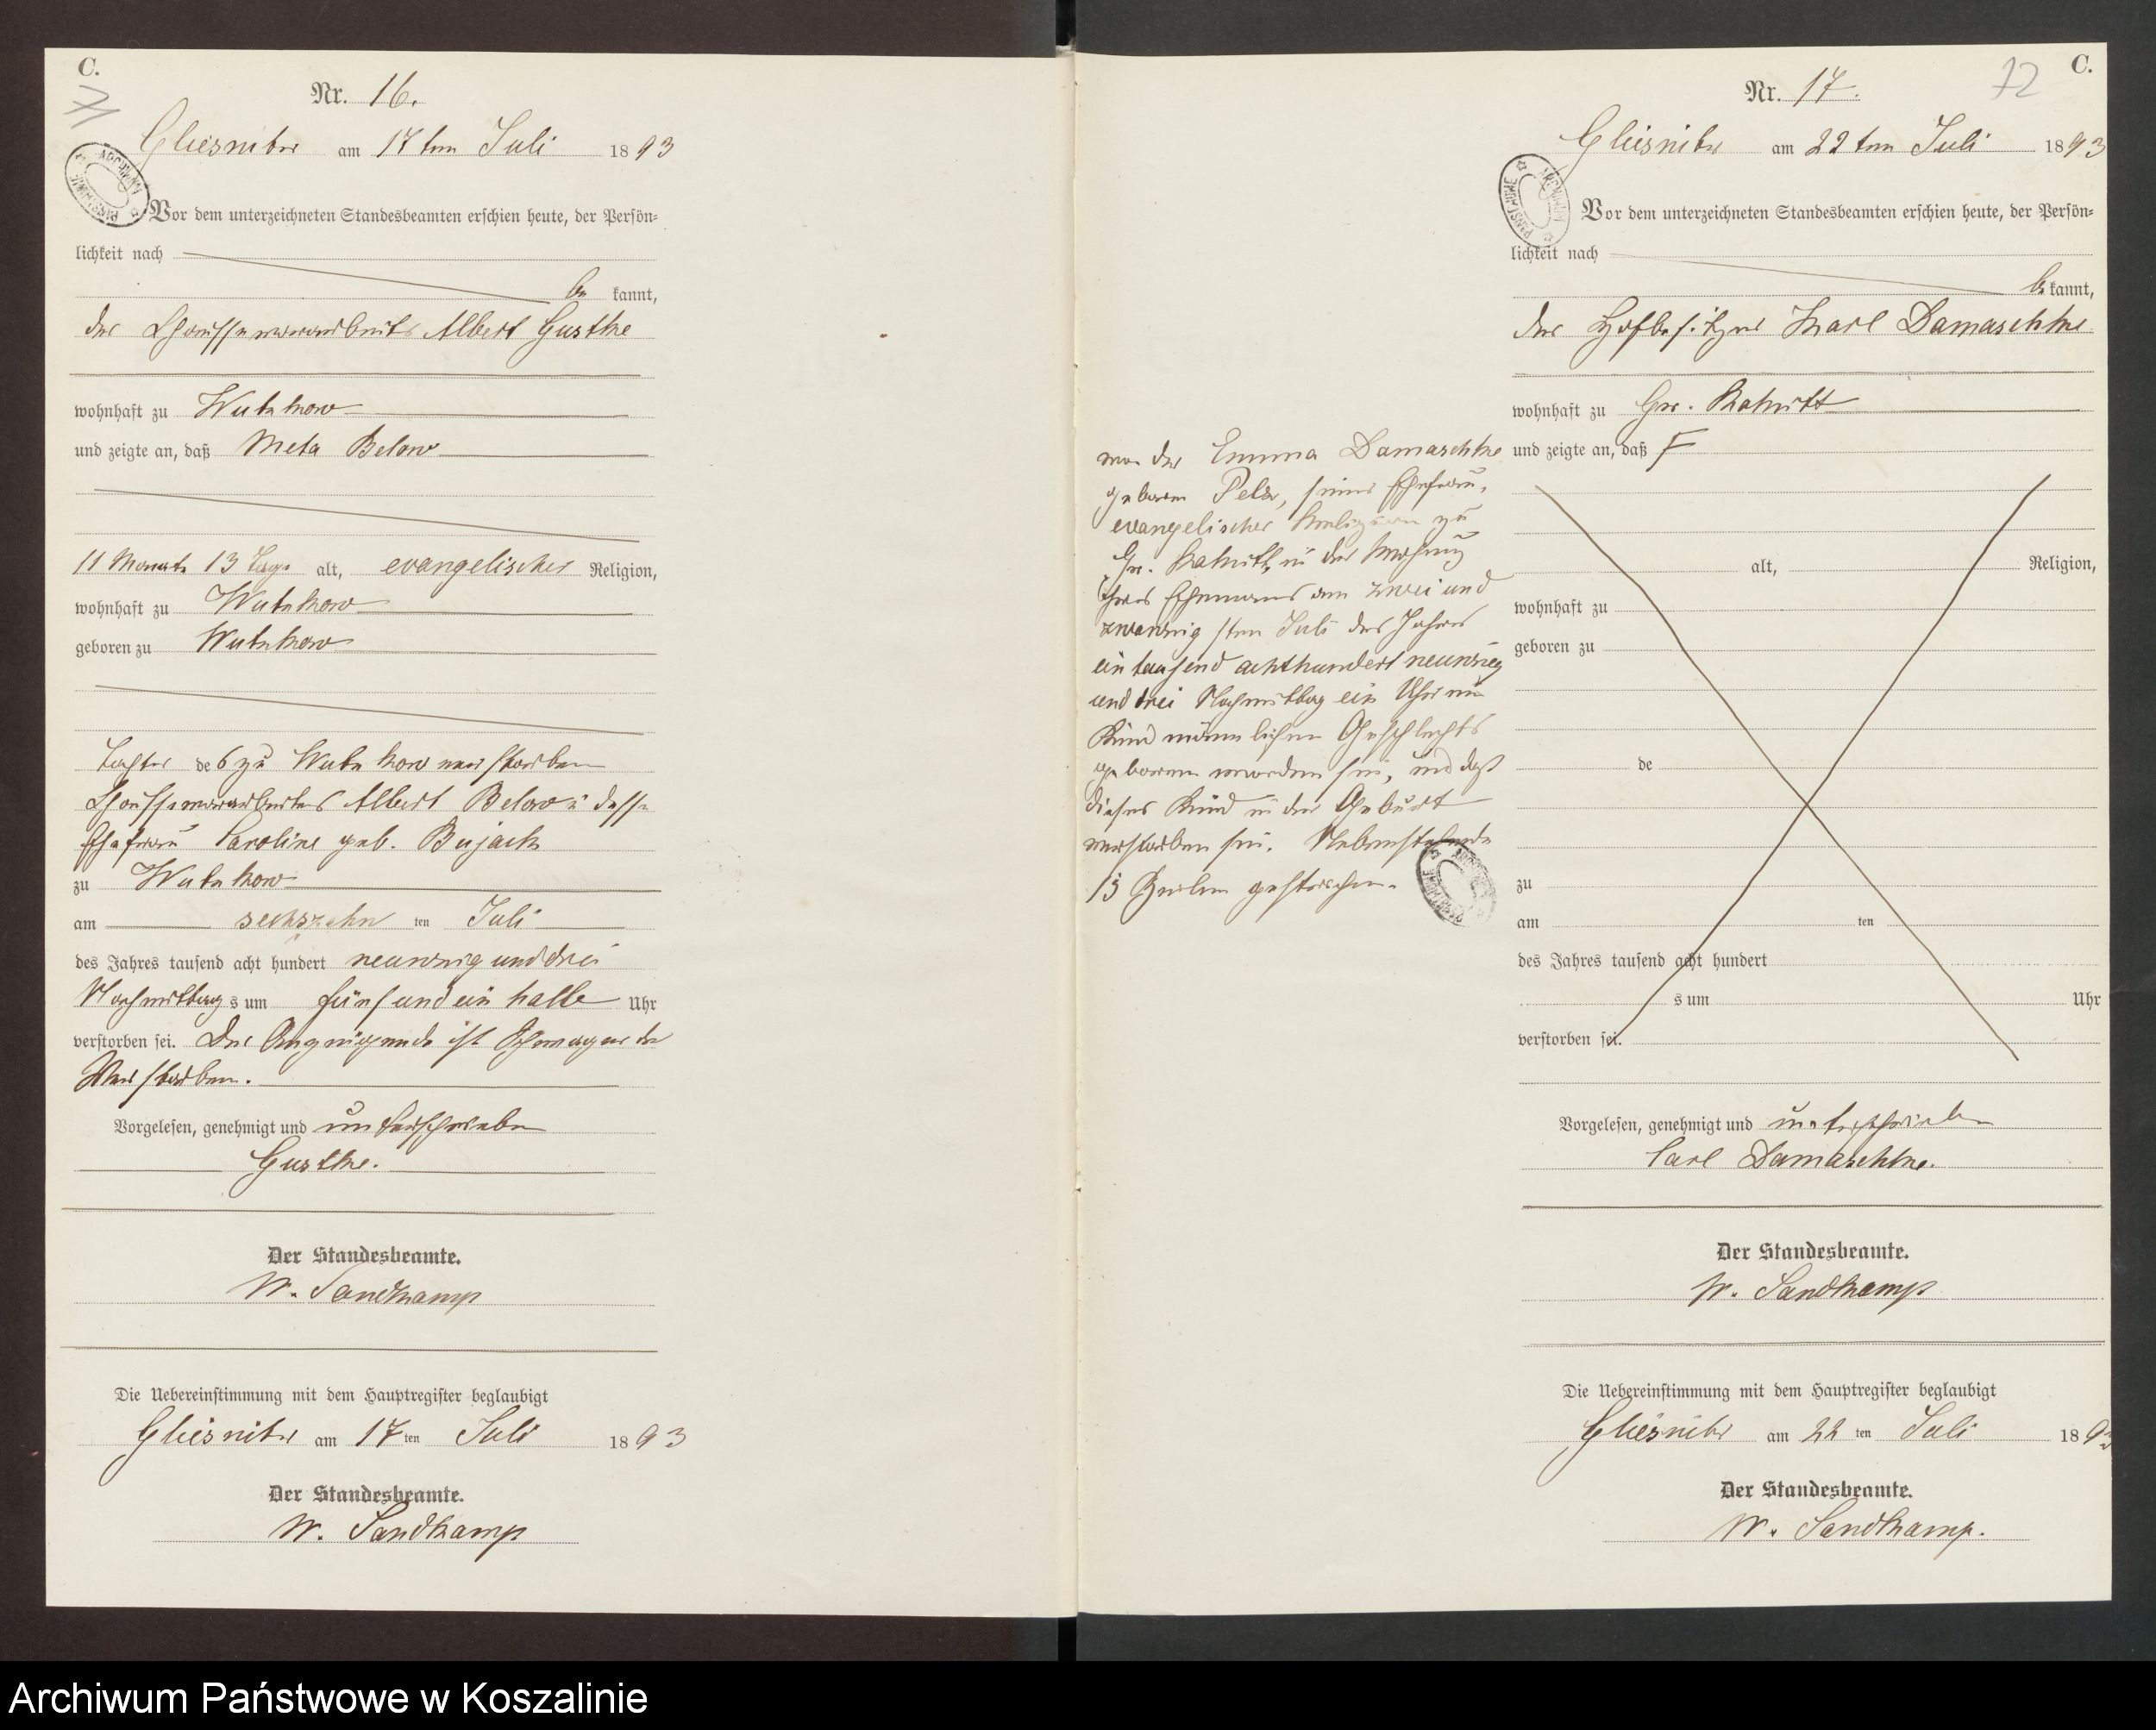 C.
Nr. 16.
Gliesnitz am 17ten Juli 1893
Vor dem unterzeichneten Standesbeamten erschien heute, der Persön=
lichkeit nach
be kannt,
der Chausseearbeiter Albert Guske
wohnhaft zu Wutzkow
und zeigte an, daß Meta Below
11 Monate 13 Tage alt, evangelischer Religion,
wohnhaft zu Wutzkow
geboren zu Wutzkow
Tochter des zu Wutzkow verstorbenen
Albert Below
Ehefrau Caroline geb. Bujack
zu Wutzkow
am sechszehn ten Juli
des Jahres tausend acht hundert neunzig und drei
Nachmittag s um fünf und ein halb Uhr
verstorben sei. Der Anzeigende ist Schwager der
Verstorbenen.
Vorgelesen, genehmigt und unterschrieben
Guske.
Der Standesbeamte.
W. Sandkamp
Die Uebereinstimmung mit dem Hauptregister beglaubigt
Gliesnitz am 17 ten Juli 1893
Der Standesbeamte.
W. Sandkamp
72 C.
Nr. 17.
Gliesnitz am 22ten Juli 1893
Vor dem unterzeichneten Standesbeamten erschien heute, der Persön=
lichkeit nach
be kannt,
der Hofbesitzer Karl Damaschke
wohnhaft zu Gr. Rakitt
und zeigte an, daß F
von der Emma Damaschke
geboren seiner Ehefrau,
evangelischer Religion zu
Gr. Rakitt, in der Wohnung
ihres Ehemanns am zwei und
zwanzigsten Juli des Jahres
ein tausend achthundert neunzig
und drei Nachmittag ein Uhr ein
Kind männlichen Geschlechts
geboren worden sei, und daß
dieses Kind in der Geburt
verstorben sei. Nebenstehende
13 Zeilen gestrichen.
alt, Religion,
wohnhaft zu
geboren zu
de
zu
am ten
des Jahres tausend acht hundert
s um Uhr
verstorben sei.
Vorgelesen, genehmigt und unterschrieben
Carl Damaschke.
Der Standesbeamte.
W. Sandkamp
Die Uebereinstimmung mit dem Hauptregister beglaubigt
Gliesnitz am 22 ten Juli 1893
Der Standesbeamte.
W. Sandkamp.
Archiwum Państwowe w Koszalinie